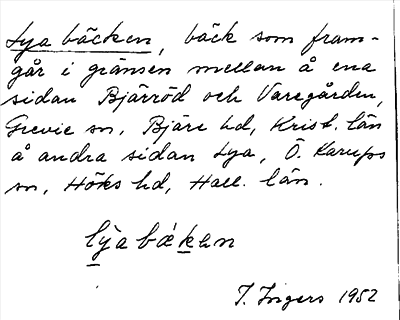 Lya bäcken, bäck som fram-
går i gränsen mellan å ena
sidan Bjärröd och Varegården,
Grevie sn, Bjäre hd, Krist. län
å andra sidan Lya, Ö. Karups
sn, Höks hd, Hall. län.
lýa bäken
I. Ingers 1952